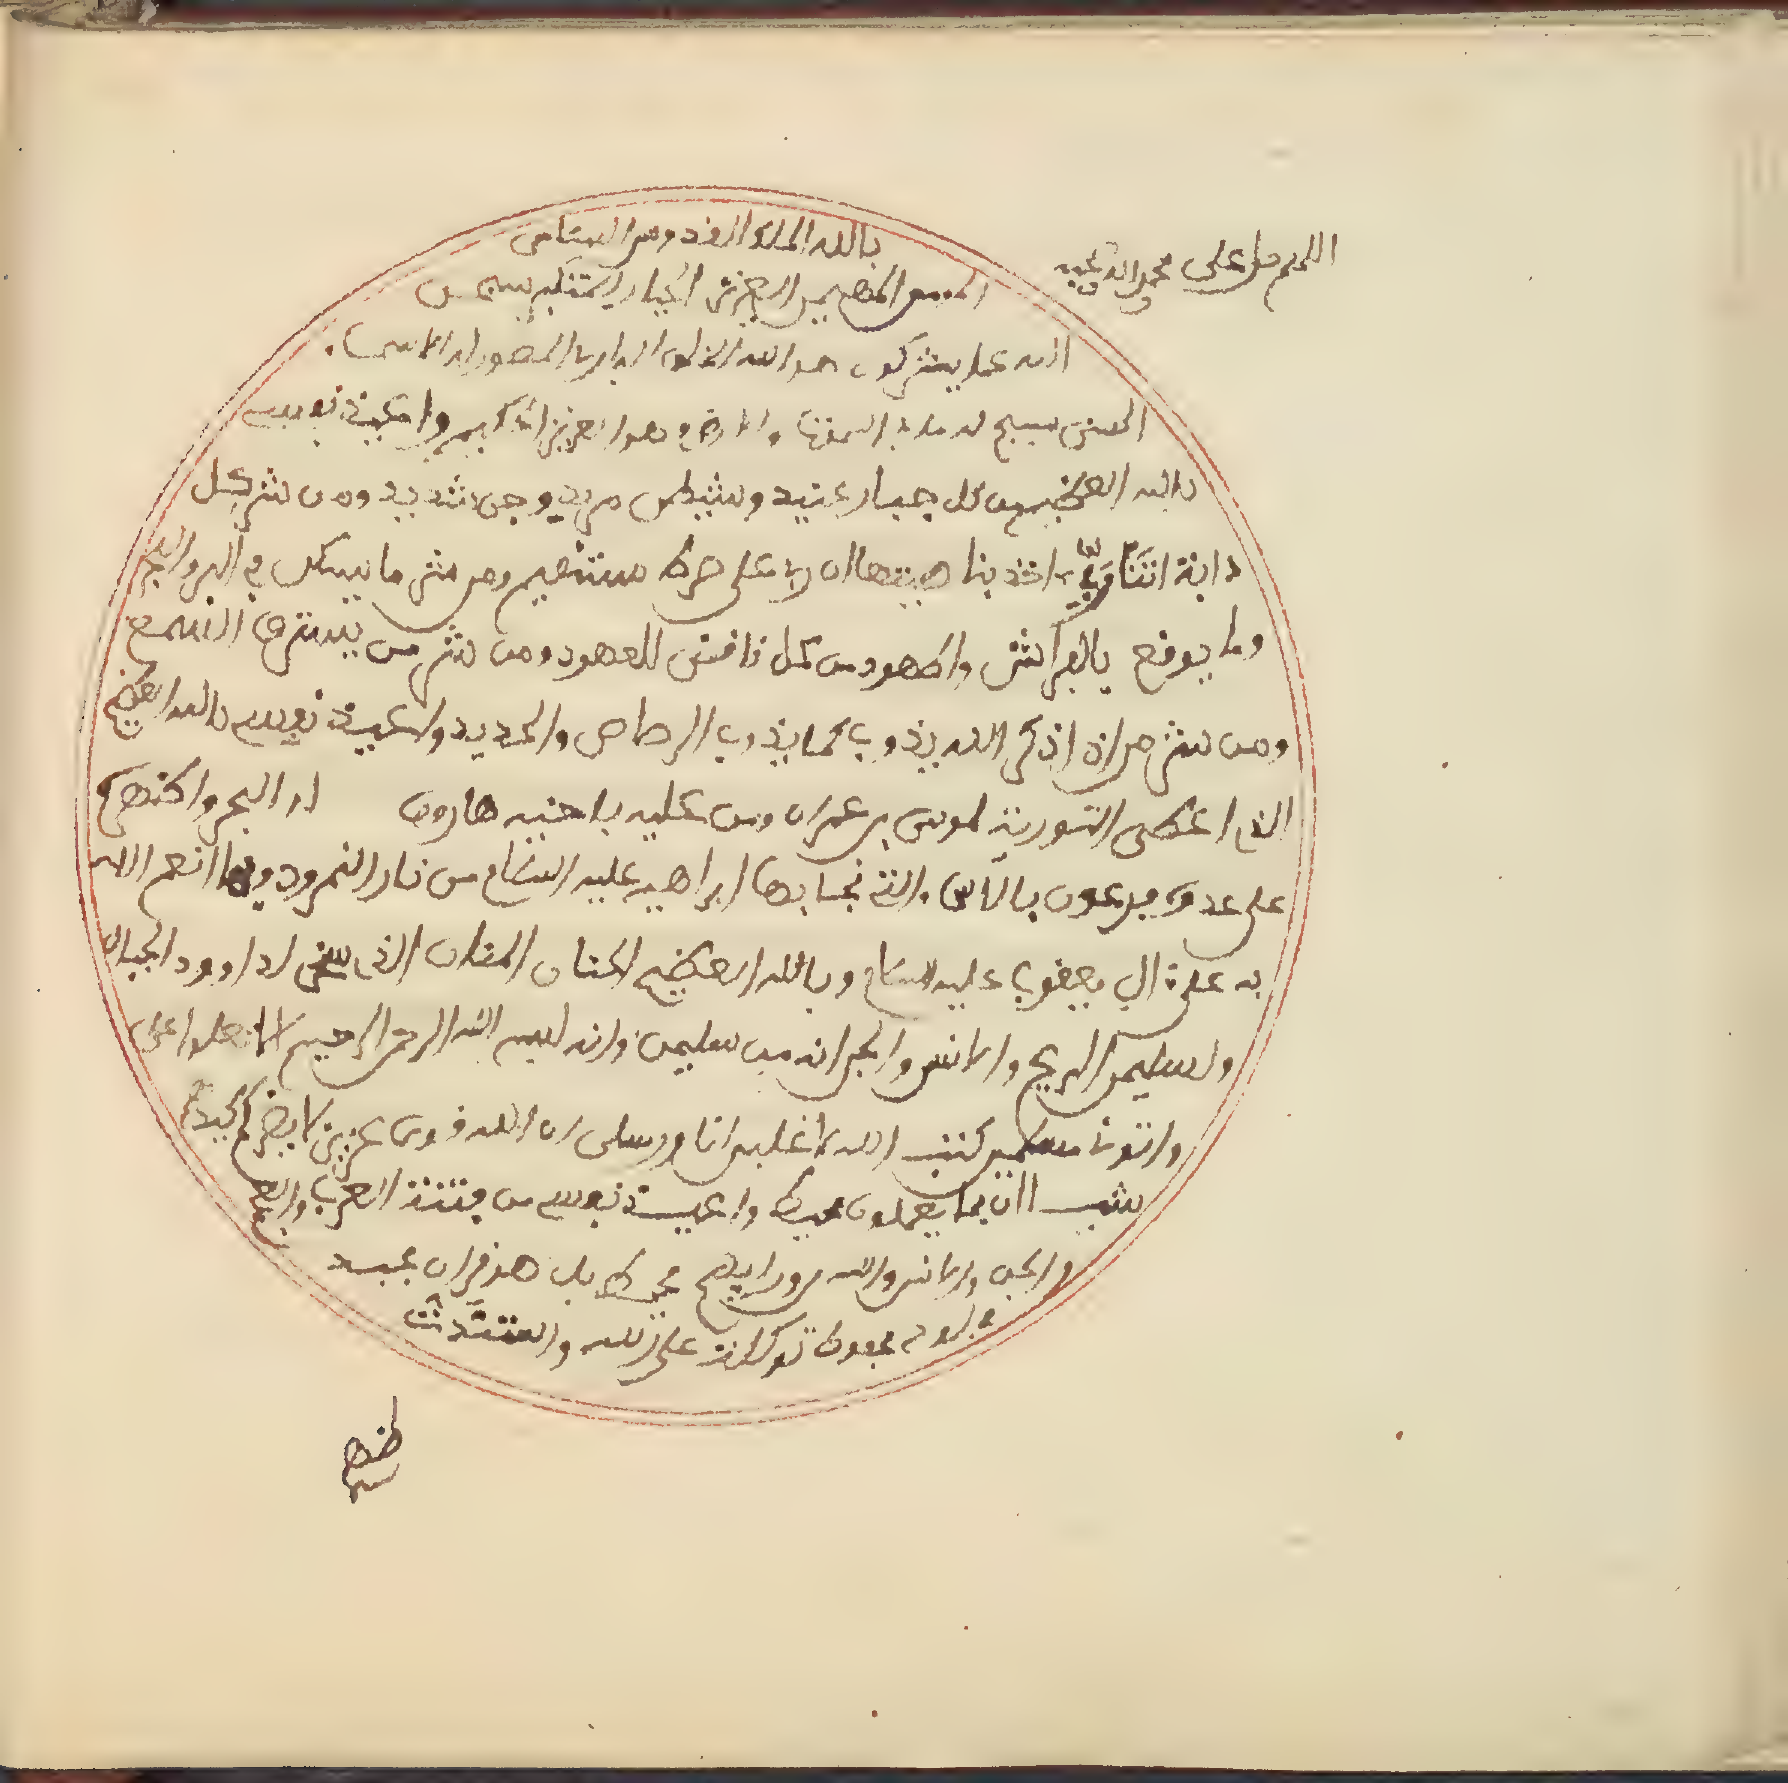 اللهم صل على محمد واله وصحبه
بالله الملك القدوس السلام
المومن المهيمن العزيز الجبار المتكبر سبحن
الله عما يشركون هو الله الخلق البارئ المصور له الاسما
الحسنى يسبح له ما في السموت والارض وهو العزيز الحكيم واعيذ نفسي
بالله العظيم من كل جبار عنيد وشيطن مريد وجن شديد ومن شر كل
دابة انت ربي اخذ بناصيتها ان ربي على صرط مستقيم ومن شر ما يسكن في البر والبحر
وما يوقع بالفراش والمهود من كل ناقض للعهود ومن شر من يسترق السمع
ومن شر من اذا ذكر الله يذوب كما يذوب الرصاص والحديد واعيذ نفسي بالله العظيم
الذي اعطى التورية لموسى بن عمران ومن عليه باخيه هارون البحر
على عدوه فرعون التي نجا بها ابراهيم عليه السلام من نار النمرود وبما انعم الله
به على ال يعقوب عليه السلام وبالله العظيم الحنان المنان الذي سخر لداوود الجبال
ولسليمن الريح والانس والجن انه من سليمن وانه بسم الله الرحمن الرحيم الا تعلوا على
واتوني مسلمين كتب الله لاغلبن انا ورسلي ان الله قوي عزيز لا يضركم كيدهم
شيا ان بما يعملون محيط واعيذ نفسي من فتنة العرب والعجم
والجن والانس والله من ورايهم محيط بل هو قران مجيد
في لوح محفوظ توكلت على الله